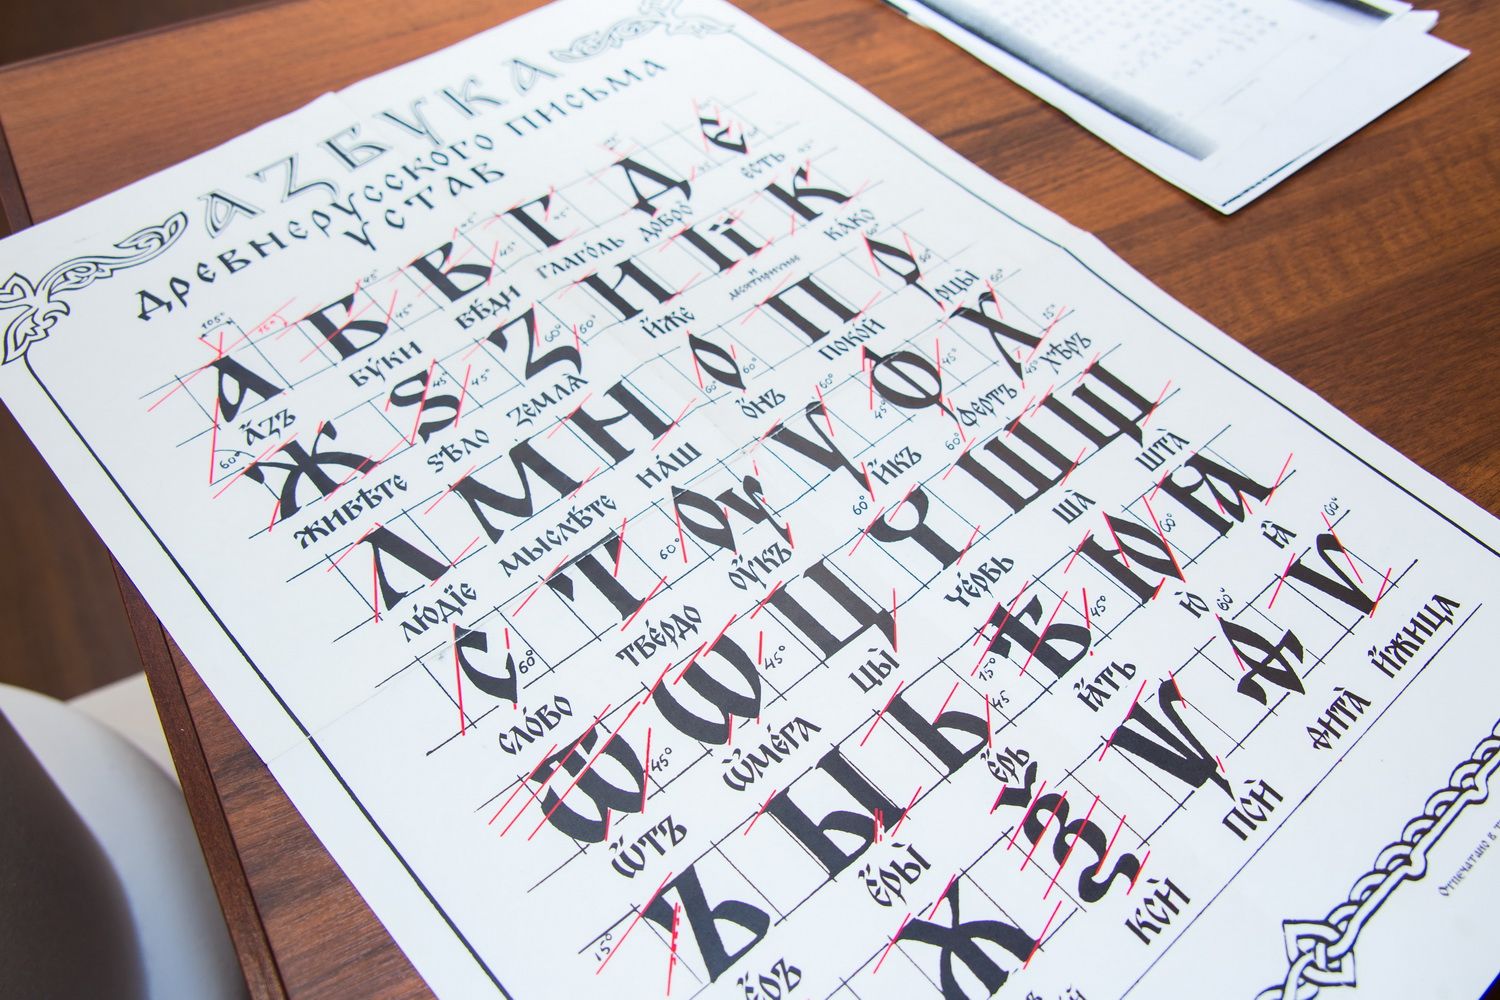 АЗБУКА
ДРЕВНЕРУССКОГО ПИСЬМА
УСТАВ
А Б В Г Д Є
А҆́ЗЪ БУ́КИ ВѢ́ДИ ГЛАГО́ЛЬ ДОБРО̀ Е҆́СТЬ
Ж Ѕ З И Ї К
ЖИВѢ́ТЕ ЅѢЛО̀ ЗЕМЛѦ̀ И҆́ЖЕ И ДЕСЯТИРИЧНОЕ КА́КО
Л М Н О П Р
ЛЮ́ДІЕ МЫСЛѢ́ТЕ НА́Ш О҆́НЪ ПОКО́Й РЦЫ̀
С Т Оу Ѵ Ф Х
СЛО́ВО ТВЕ́РДО ОУ҆́КЪ И҆́КЪ ФЕ́РТЪ ХѢ́РЪ
Ѿ Ѡ Ц Ч Ш Щ
Ѿ҆́ТЪ Ѡ҆МЕ́ГА ЦЫ̀ ЧЕ́РВЬ ША̀ ШТА̀
Ъ Ы Ь Ѣ Ю Ꙗ
Е҆́РЫ̀ Е҆́РЬ Ꙗ҆́ТЬ Ю҆̀ Ꙗ҆̀
Ѫ Ѯ Ѱ Ѳ Ѵ
КСЍ ПСЍ ѲИТА̀ И҆́ЖИЦА
Отпечатано в